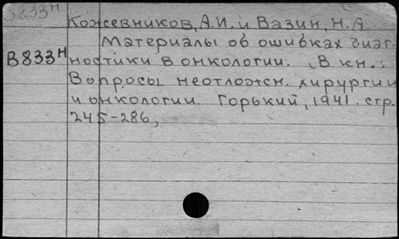 В833н Кожевников, А.И. и Вазин, Н.А
Материалы об ошибках диаг-
В833н ностики в онкологии. (В кн.:
Вопросы неотложн. хирургии
и онкологии. Горький, 1941. стр.
245-286,